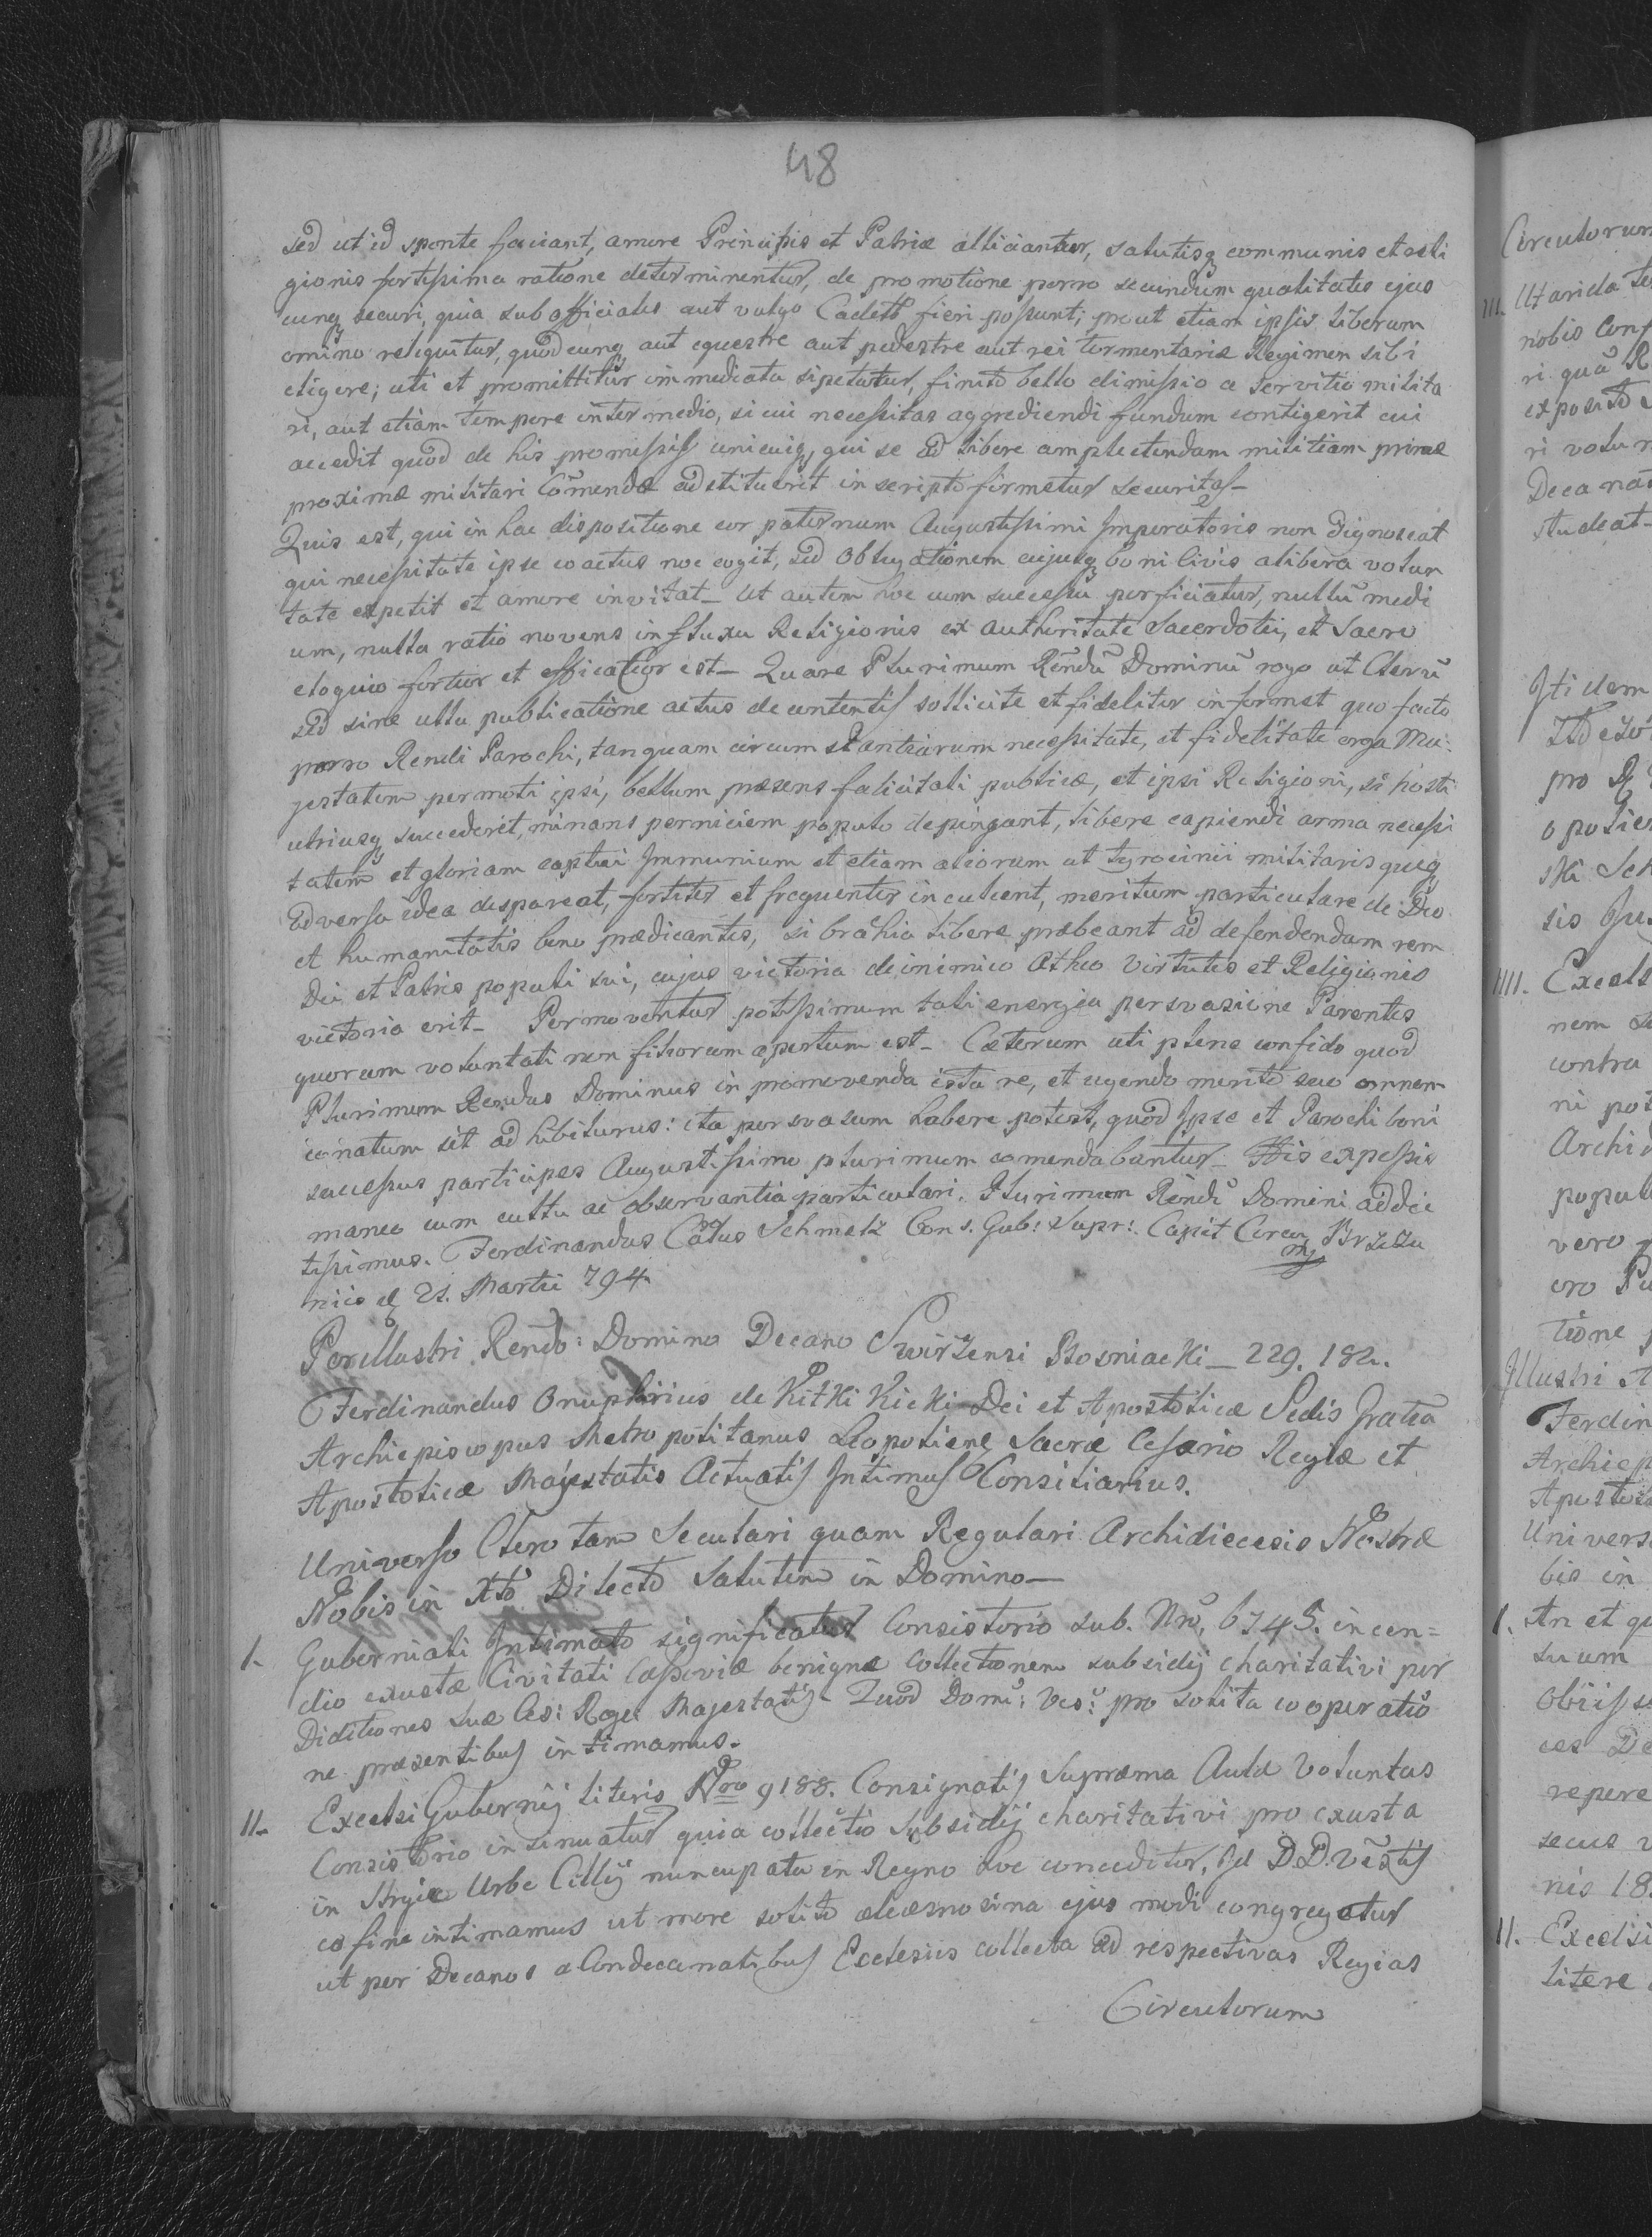 48
sed ut id sponte faciant, amore Principis et Patriæ alliciantur, salutisq communis et reli
gionis fortissima ratione determinentur, de promotione porro secundum qualitates ejus
cunq securi, quia subofficiales aut vulgo Cadets fieri possunt; prout etiam ipsis liberum
omino reliquitur, quodcunq aut equestre aut pedestre aut rei tormentariæ Regimen sibi
eligere; uti et promittitur immediata si petatur, finito bello dimissio a servitio milita
ri, aut etiam tempore intermedio, si cui necessitas aggrediendi fundum contigerit cui
accedit quod de his promissis unicuiq, qui se ad libere amplectendam militiam primæ
proximæ militari Comendæ adstituerit in scripto firmetur securitas_
Quis est, qui in hac dispositione cor paternum Augustissimi Imperatoris non dignoscat
qui necessitate ipse coactus noc cogit, sed Obligationem cujusq boni Civis a libera volun
tate expetit et amore invitat_ Ut autem hoc cum successu perficiatur, nullu medi
um, nulla ratio novens influxu Religionis ex authoritate Sacerdotii, et Sacro
eloquio fortior et efficatior est_ Quare Plurimum Rendu Dominu rogo ut Cleru
sed sine ulla publicatione actus de contentis sollicite et fideliter informet quo facto
porro Rendi Parochi, tanquam circumstantiarum necessitate, et fidelitate erga Ma:
jestatem permoti ipsi, bellum præsens falicitati publicæ, et ipsi Religioni, si hosti
utriusq succederet, minans perniciem populo depingant, libere capiendi arma necessi
tatem et gloriam capturi Immunium et etiam aliorum ut tyrocinii militaris quæq
adversa idea dispareat, fortiter et frequenter inculcent, meritum particulare de Deo
et humanitatis bene prædicantes, si brachia libere præbeant ad defendendam rem
Dei et Patriæ populi sui, cujus victoria de inimico Atheo Virtutis et Religionis
victoria erit_ Permoventur potissimum tali energica persvasione Parentes
quorum voluntati non filiorum apertum est_ Cæterum uti plene confido quod
Plurimum Rendus Dominus in promovenda ista re, et agendo merito suo omnem
conatum sit adhibiturus: ita persvasum habere potest, quod Ipse et Parochi boni
successus participes Augustissimo plurimum comendabuntur_ His expossis
maneo cum cultu ac observantia particulari. Plurimum Rendi Domini addic
tissimus. Ferdinandus Schmelz Cons. Gub: Supr: Capit Circu Brzeza
nics 21. Martii 794.
Perillustri Rendo: Domino Decano Swirzensi Bosniacki_ 229. 182.
Ferdinandus Onuphrius de Kitki Kicki Dei et Apostolicæ Sedis Gratia
Archiepiscopus Metropolitanus Leopoliens Sacræ Cesareo Regiæ et
Apostolicæ Majestatis Actualis Intimus Consiliarius.
Universo Clero tam Seculari quam Regulari Archidiecesis Nostræ
Nobis in Xto Dilecto Salutem in Domino_
I. Guberniali Intimato significatur Consistorio sub. Nro, 6745. incen=
dio exustæ Civitati benigne collectionem subsidij charitativi per
Ditiones suæ Ces: Regei Majestatis_ Quod Domi: Ves: pro solita cooperatio
ne præsentibus intimamus.
II_ Excelsi Gubernij literis Nro 9188. Consignatis Supræma Aulæ Voluntas
Consistorio insinuatur quia collectio Subsidij charitativi pro exusta
in Urbe Cillij nuncupata in Regno hoc conceditur, Sed D.D. Vestis
eo fine intimamus ut more solito eleæmosina ejus modi congregetur
ut per Decanos a Condecanatibus Ecclesiis collecta ad respectivas Regias
Circulorum
Circulorum
III. Utarida
nobis Conf
ri qua R
exposito
ri volun
Decana
studeat_
Itidem
pro
opolien
ski Sch
sis
IIII. Excels
nem
contra
ni pot
Archi
popul
vero
oro Pu
tione
Illustri
Ferdin
Archiep
Aposto
Univers
bis in
I. An et qu
suum
Obiiss
ces De
repere
secus
nis 18
II. Excelsi
litere